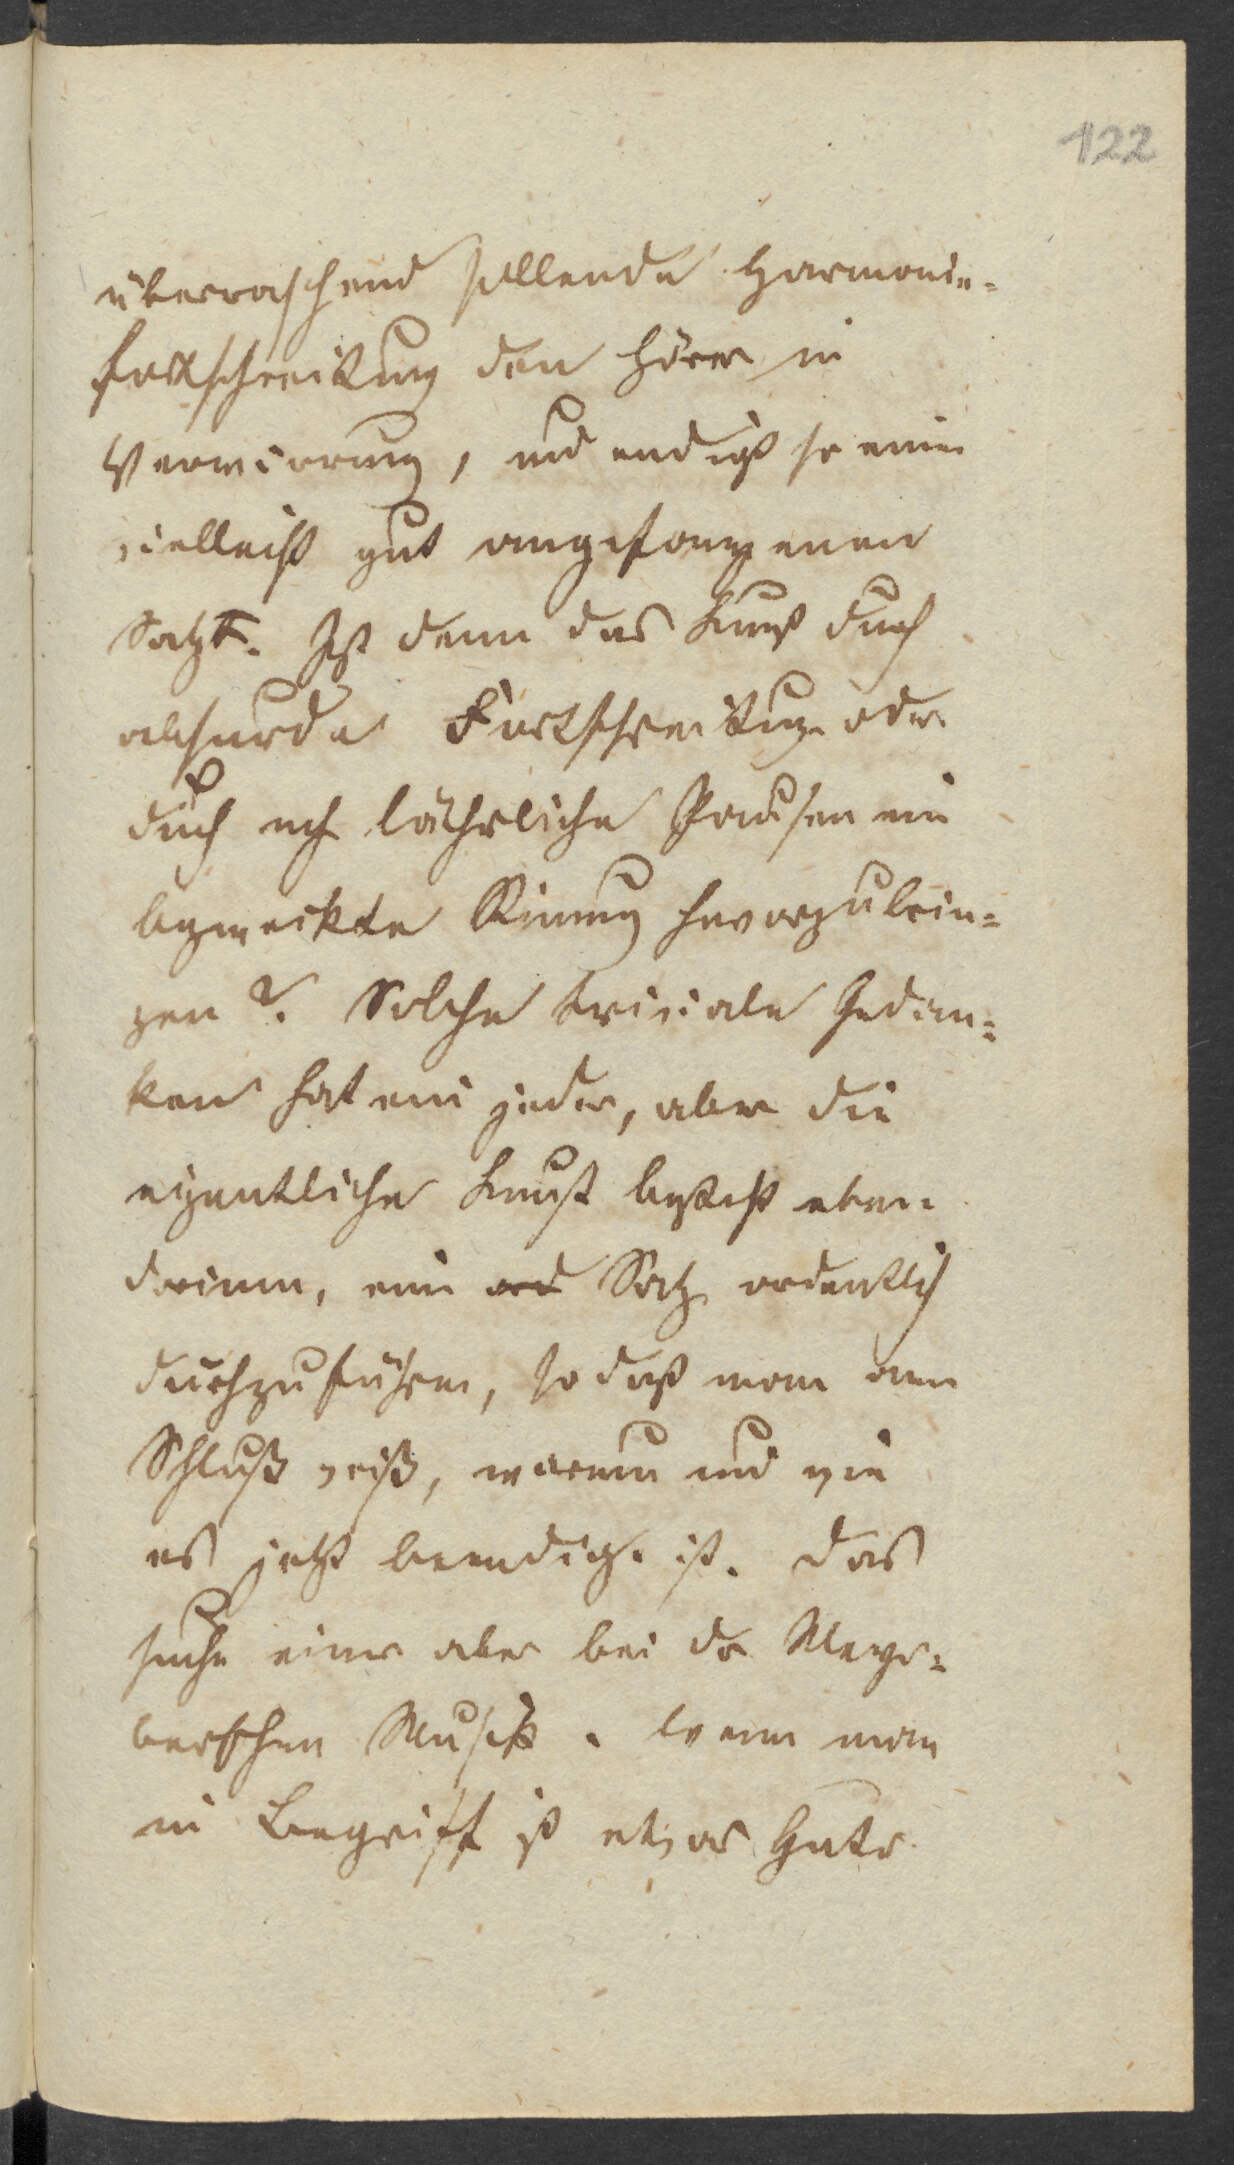 122
überraschend sollende Harmonie-
fortschreitung den Hörer in
Verwirrung, und endigt so einen
vielleicht gut angefangenen
Satz. Ist denn das Kunst durch
absurde Fortschreitung oder
durch lächerliche Pausen ein
bezweckte hervorzubrin-
gen? Solche triviale Gedan-
ken hat ein jeder, aber die
eigentliche Kunst besteht eben
darinn, ein ord Satz ordentlich
durchzuführen, so daß man am
Schluß weiß, warum und wie
es jetzt beendigt ist. Das
suche einer aber bei der Meyer-
beerschen Musik. Wenn man
im Begriff ist etwas Gutes